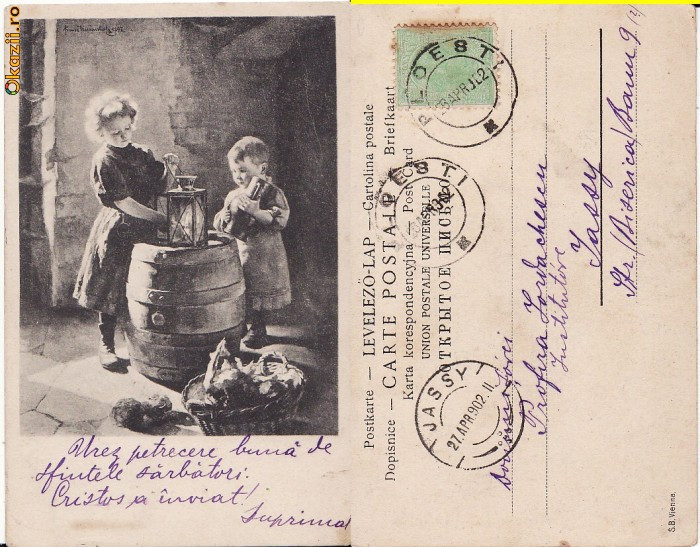 Okazii.ro
Urez petrecere bună de
sfintele sărbători.
Cristos a înviat!
Suprima
Postkarte — LEVELEZŐ-LAP — Cartolina postale
Dopisnice — CARTE POSTALE — Briefkaart
Karta korespondencyjna — Post Card
UNION POSTALE UNIVERSELLE
ОТКРЫТОЕ ПИСЬМО
PLOESTI
APR
PLOESTI
JASSY
27 APR 902
Profira Iordachescu
Institutóre
Jassy
Str. (Biserica) Banu 9
S.B. Vienna.